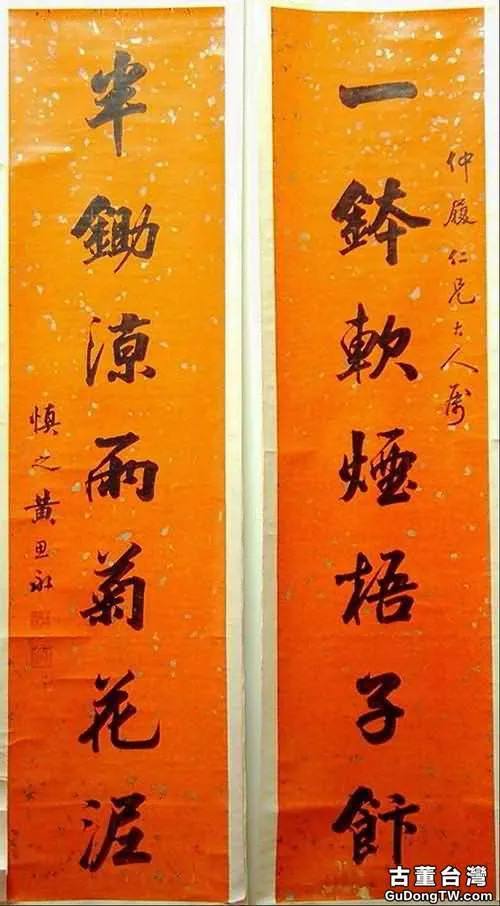 仲履仁兄大人属
一鉢軟煙梧子飰
半鋤涼雨菊花泥
慎之黄思永
古董台灣
GuDongTW.com